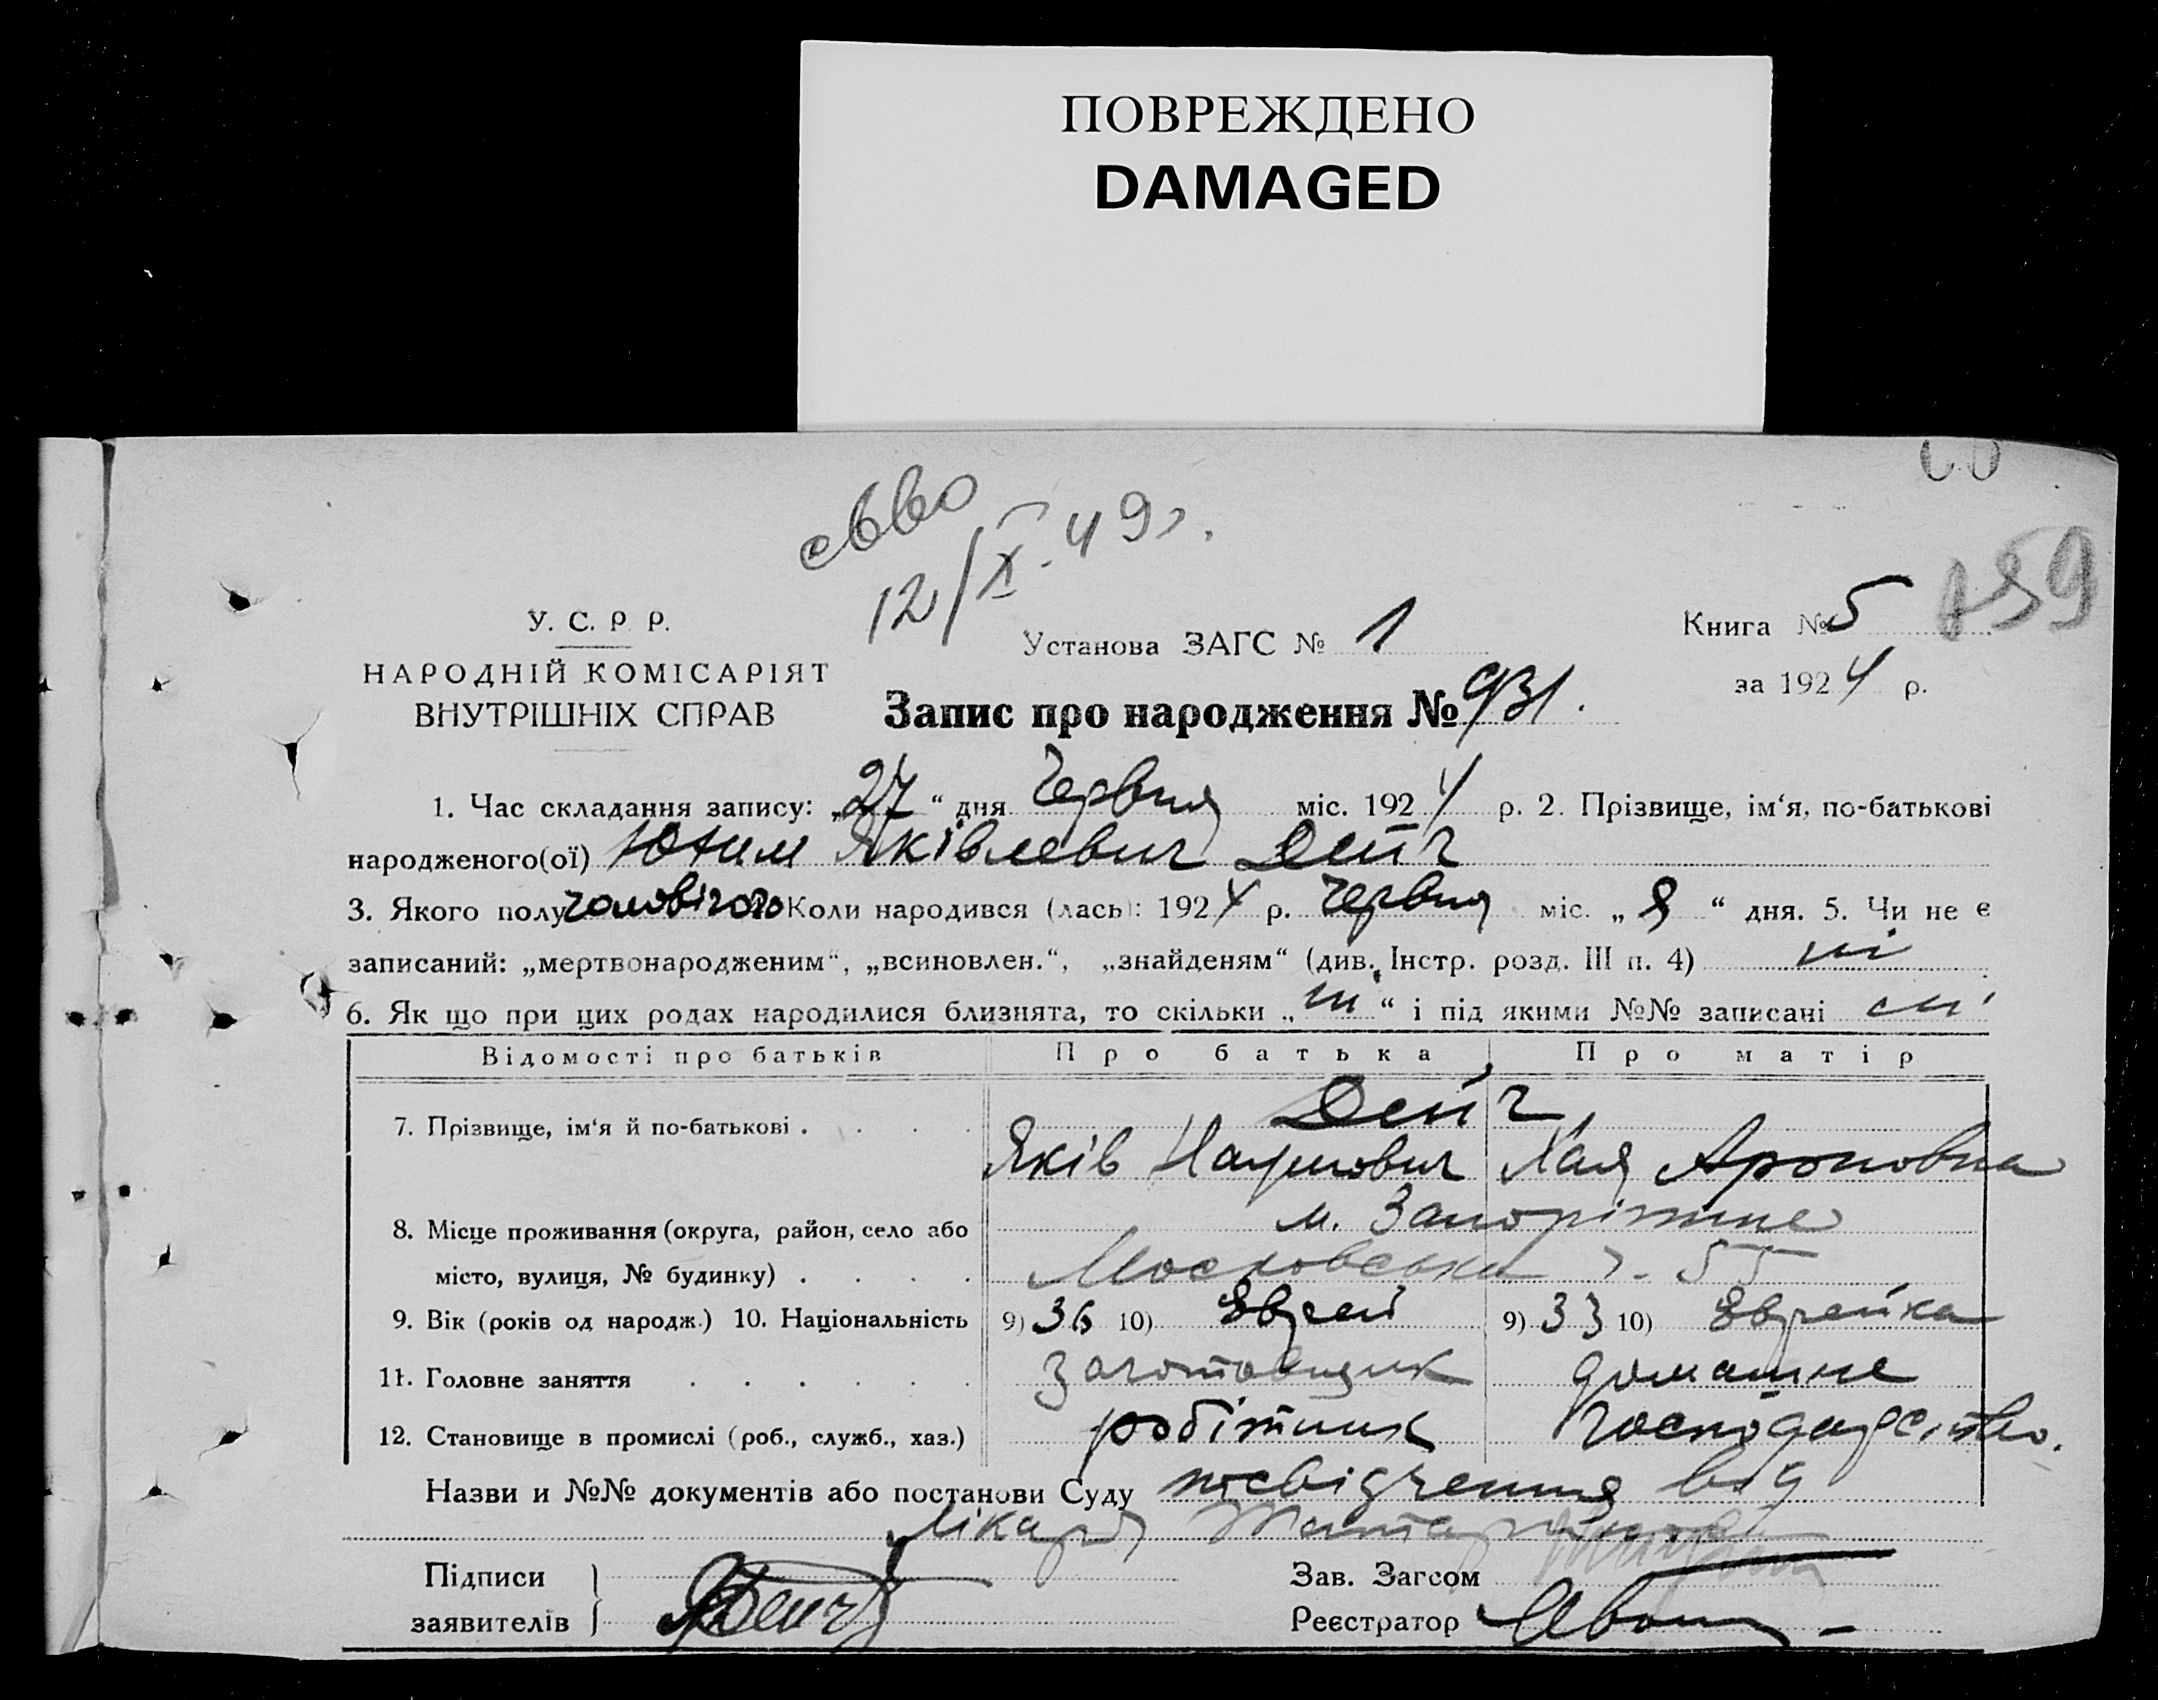 ПОВРЕЖДЕНО
DAMAGED
сьво
12/X. 49г.
859
У. С. Р Р.
НАРОДНІЙ КОМІСАРІЯТ
ВНУТРІШНІХ СПРАВ
Установа ЗАГС № 1
Книга № 5
за 1924 р.
Запис про народження № 931.
1. Час складання запису: „27“ дня Червня міс. 1924 р. 2. Прізвище, ім‘я, по-батькові
народженого(ої) Юхим Яківлевич Дейч
3. Якого полу чоловічого Коли народився (лась): 1924 р. Червня міс. „8“ дня. 5. Чи не є
записаний: „мертвонародженим“, „всиновлен.“, „знайденям“ (див. Інстр. розд. III п. 4) ні
6. Як що при цих родах народилися близнята, то скільки „ні“ і під якими №№ записані ні
Відомості про батьків Про батька Про матір
7. Прізвище, ім‘я й по-батькові . . . . Дейч
Яків Наумович Хая Ароновна
8. Місце проживання (округа, район, село або м. Запоріжже
місто, вулиця, № будинку) . . . . Московська 55
9. Вік (років од народж.) 10. Національність 9) 36 10) Еврей 9) 33 10) Еврейка
11. Головне заняття . . . . . . Заготовщик домашне
12. Становище в промислі (роб., служб., хаз.) робітник господарство.
Назви и №№ документів або постанови Суду посвідчення від
Лікаря
Підписи
заявителів } Дейч
Зав. Загсом
Реєстратор